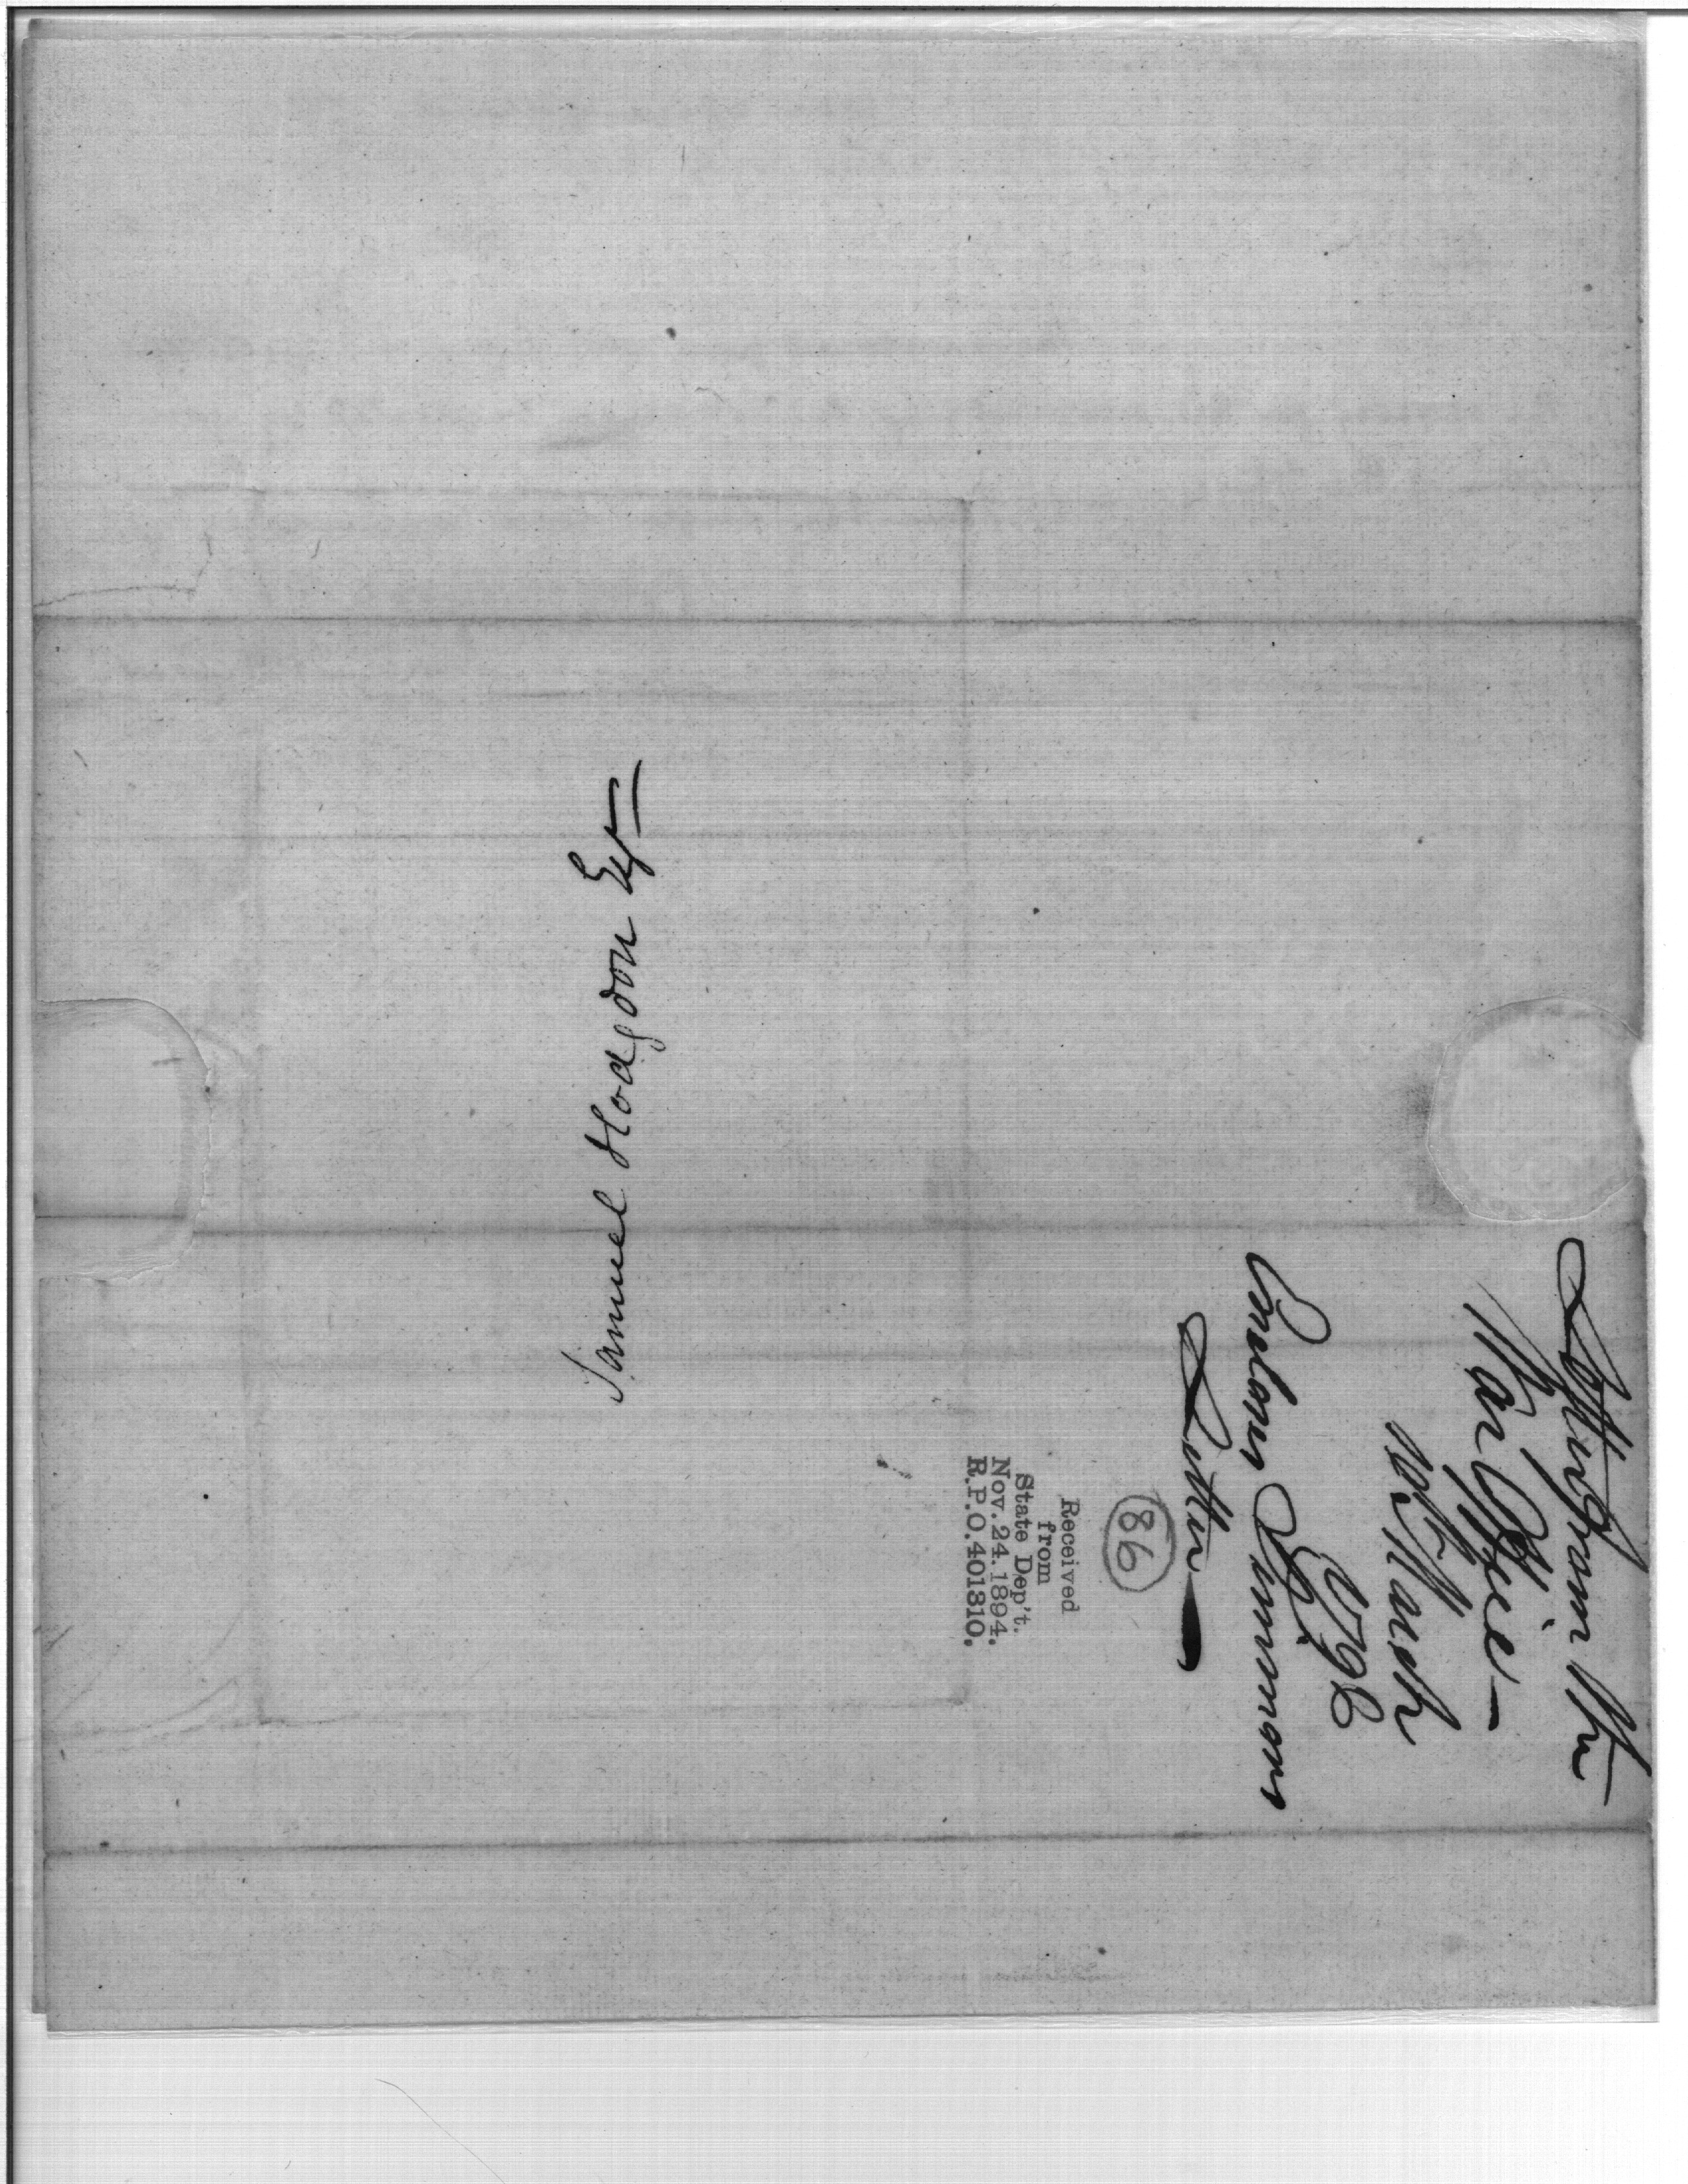 Samuel Hodgdon Esqr
War Office
10th March
1798
Enclosing Simmons
Letter
86
Received
from
State Dep't.
Nov. 24. 1894.
R.P.O. 401310.